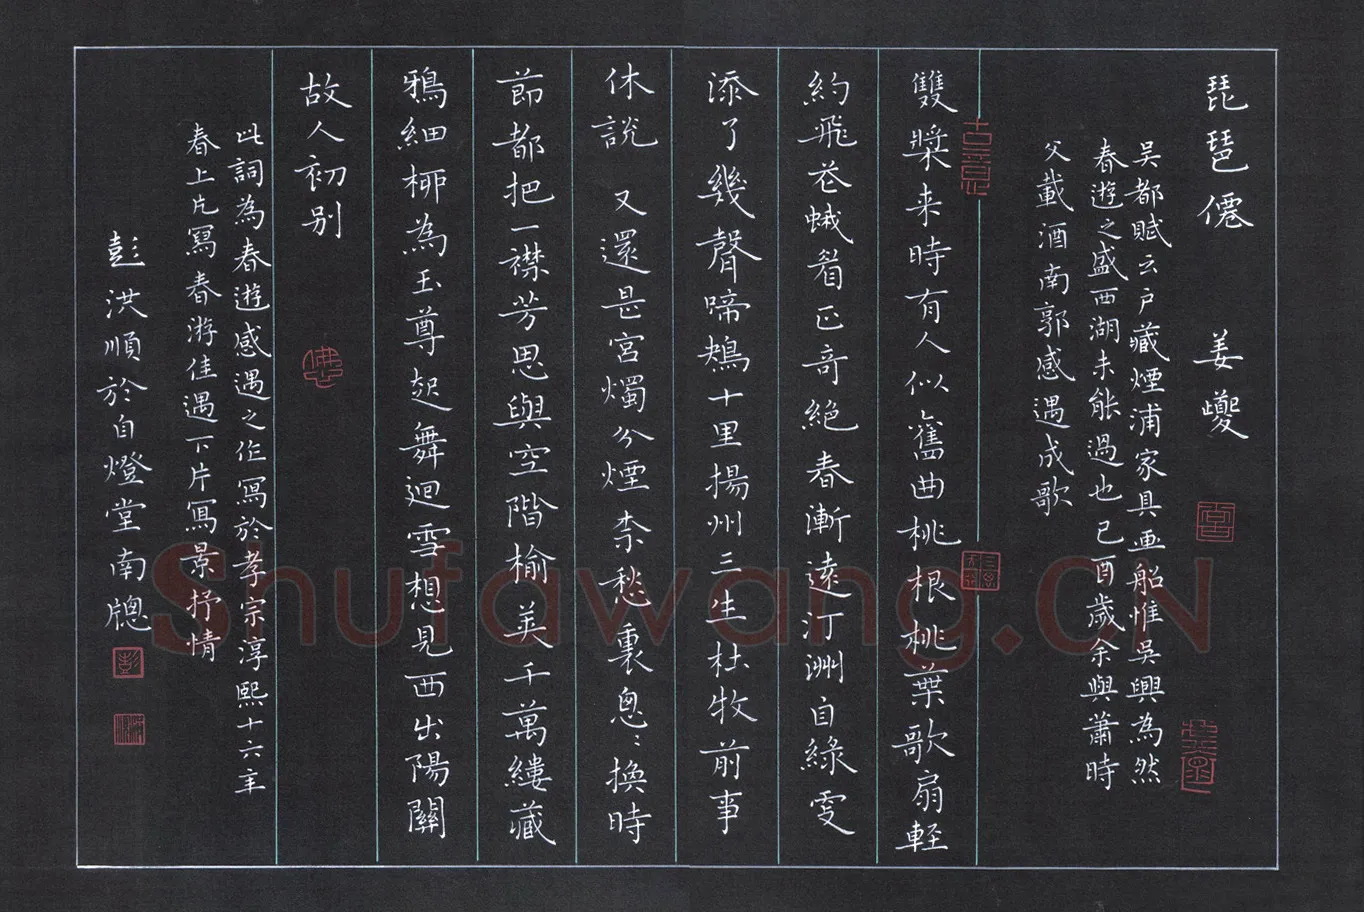 琵琶僊 姜夔
吳都賦云戶藏煙浦家具画船惟吳興為然
春遊之盛西湖未能過也已酉歲余與蕭時
父載酒南郭感遇成歌
雙槳来時有人似舊曲桃根桃葉歌扇軽
約飛花蛾眉正奇絕春漸遠汀洲自綠更
添了幾聲啼鴂十里揚州三生杜牧前事
休說 又還是宮燭分煙柰愁裏悤〻換時
節都把一襟芳思與空階榆荚千萬縷藏
鴉細柳為玉尊起舞迴雪想見西出陽關
故人初别
此詞為春遊感遇之作寫於孝宗淳熙十六年
春上片寫春游佳遇下片寫景抒情
彭洪順於自燈堂南牕
Shufawang.CN